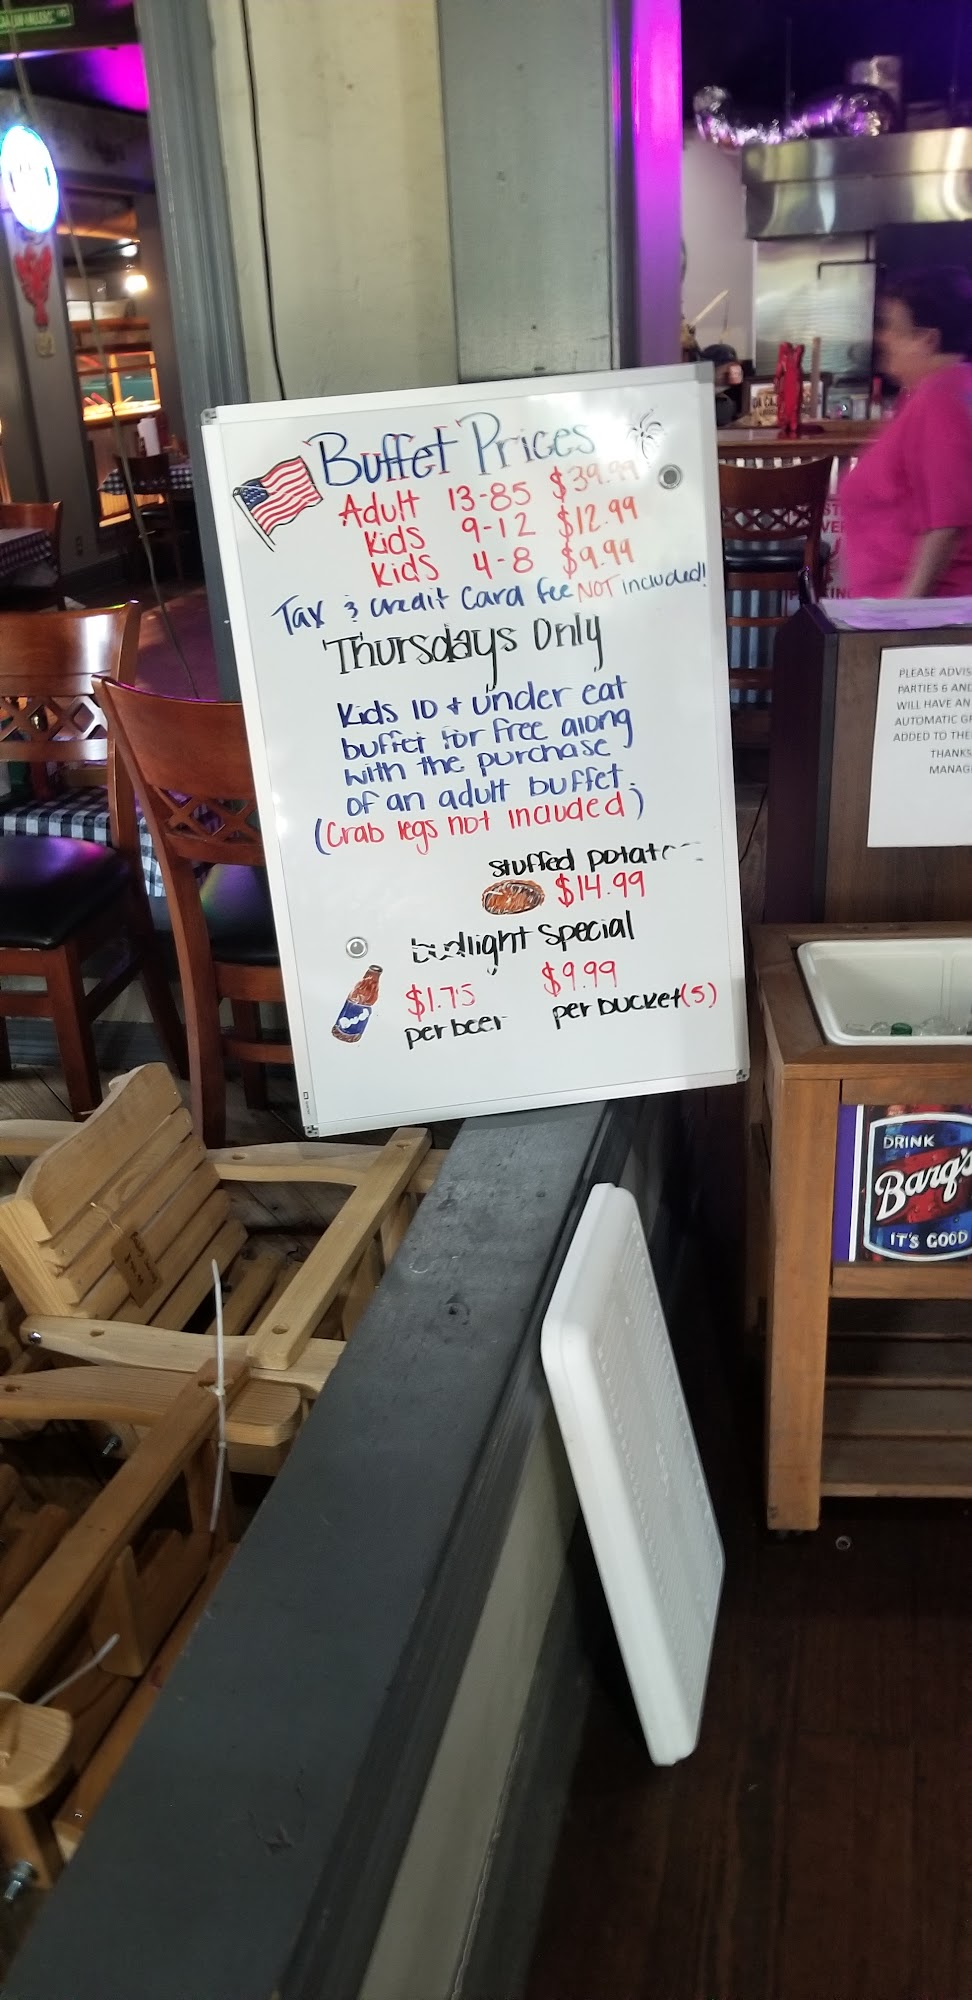 Buffet Prices
Adult 13-85 $39.99
Kids 9-12 $12.99
Kids 4-8 $9.99
Tax & credit card fee NOT included!
Thursdays Only
Kids 10 & under eat
buffet for free along
with the purchase
of an adult buffet.
(Crab legs not included)
stuffed potat
$14.99
budlight special
$1.75 $9.99
per beer per bucket (5)
PLEASE ADVIS
PARTIES 6 AND
WILL HAVE AN
AUTOMATIC G
ADDED TO THE
THANKS
MANAG
DRINK
Barq's
IT'S GOOD